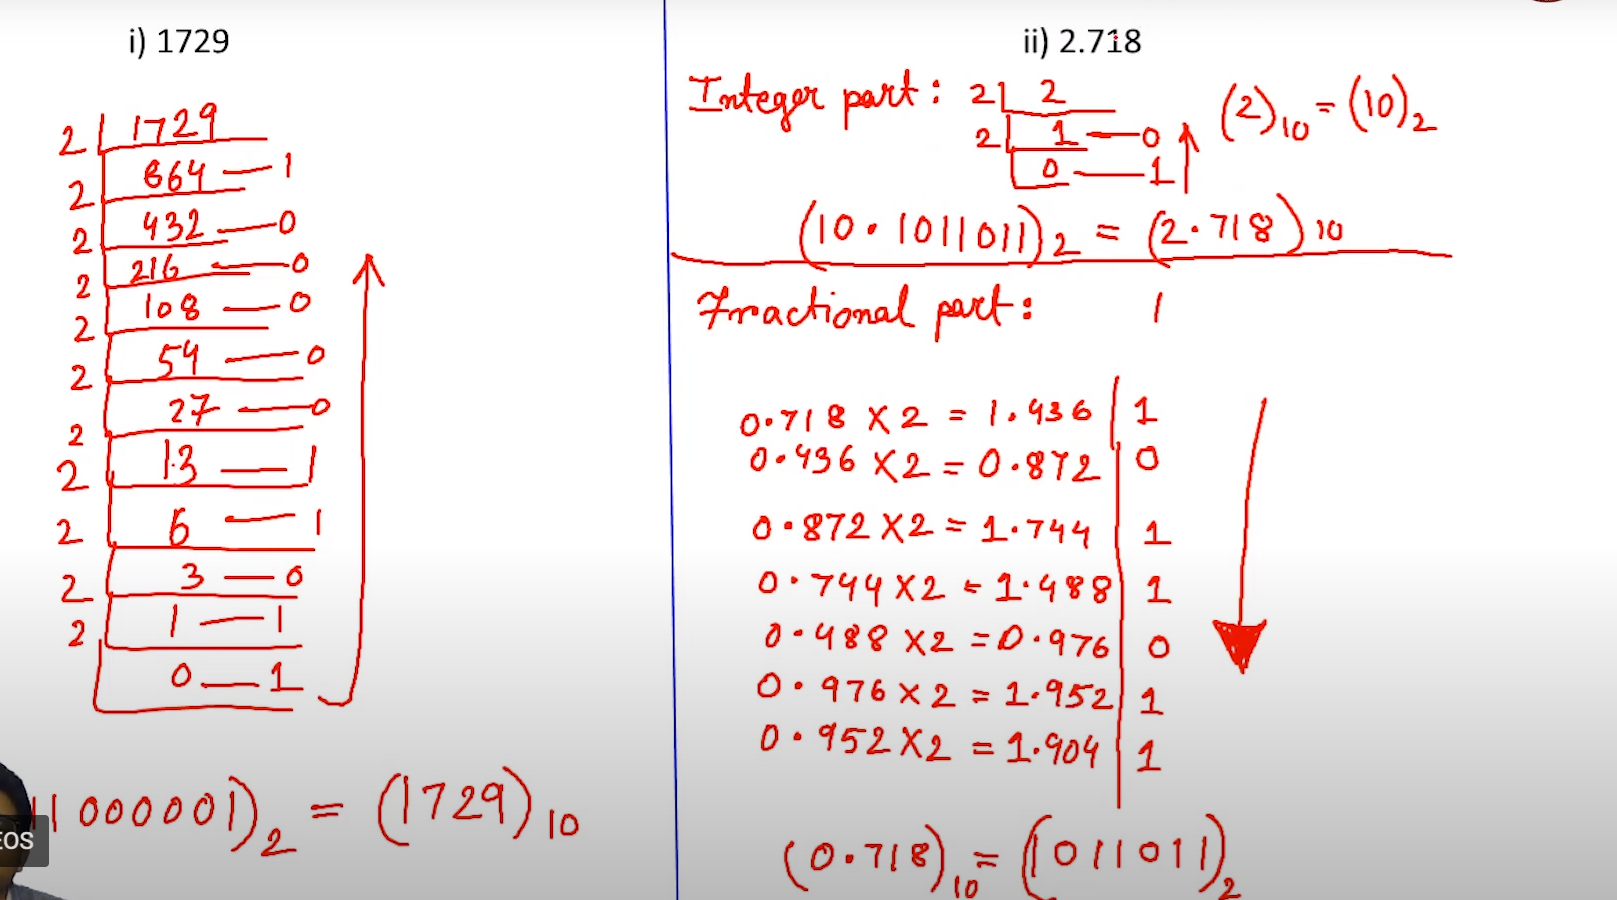 i) 1729
2 1729
2 864 — 1
2 432 — 0
2 216 — 0
2 108 — 0
2 54 — 0
2 27 — 0
2 13 — 1
2 6 — 1
2 3 — 0
2 1 — 1
0 — 1
11000001)₂ = (1729)₁₀
EOS
ii) 2.718
Integer part: 2 2
2 1 — 0
0 — 1
(2)₁₀ = (10)₂
(10.1011011)₂ = (2.718)₁₀
Fractional part: 1
0.718 X 2 = 1.436 | 1
0.436 X 2 = 0.872 | 0
0.872 X 2 = 1.744 | 1
0.744 X 2 = 1.488 | 1
0.488 X 2 = 0.976 | 0
0.976 X 2 = 1.952 | 1
0.952 X 2 = 1.904 | 1
(0.718)₁₀ = (1011011)₂